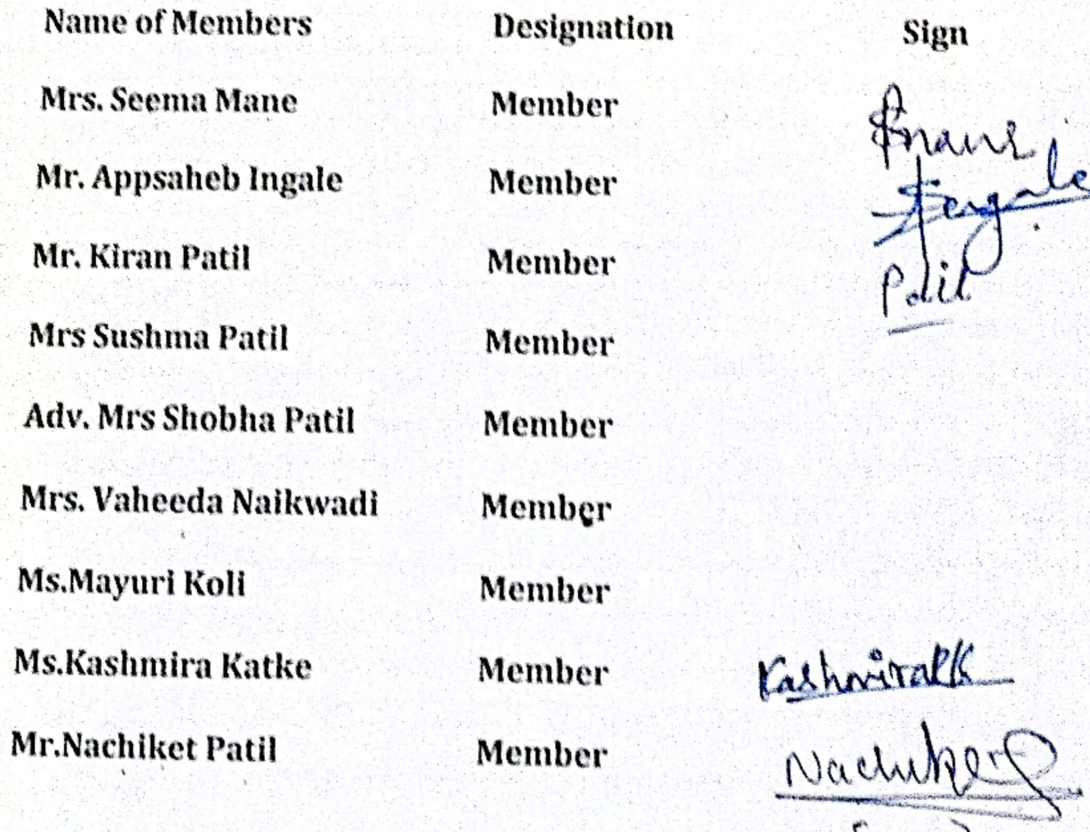 Name of Members Designation Sign
Mrs. Seema Mane Member
Mr. Appsaheb Ingale Member Ingale
Mr. Kiran Patil Member Patil
Mrs Sushma Patil Member
Adv. Mrs Shobha Patil Member
Mrs. Vaheeda Naikwadi Member
Ms.Mayuri Koli Member
Ms.Kashmira Katke Member KashmiraKK
Mr.Nachiket Patil Member